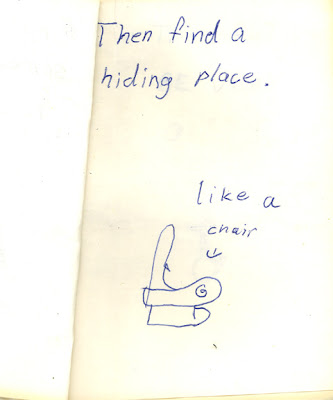 Then find a
hiding place.
like a
chair